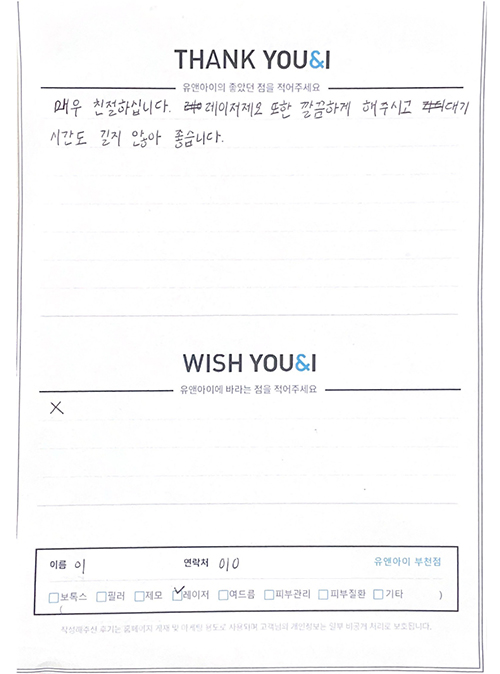 THANK YOU&I
유앤아이의 좋았던 점을 적어주세요
매우 친절하십니다. 레이저제모 또한 깔끔하게 해주시고 대기
시간도 길지 않아 좋습니다.
WISH YOU&I
유앤아이에 바라는 점을 적어주세요
X
이름 이 연락처 010 유앤아이 부천점
보톡스 필러 제모 레이저 여드름 피부관리 피부질환 기타 )
(
작성해주신 후기는 홈페이지 게재 및 마케팅 용도로 사용되며 고객님의 개인정보는 일부 비공개 처리로 보호됩니다.